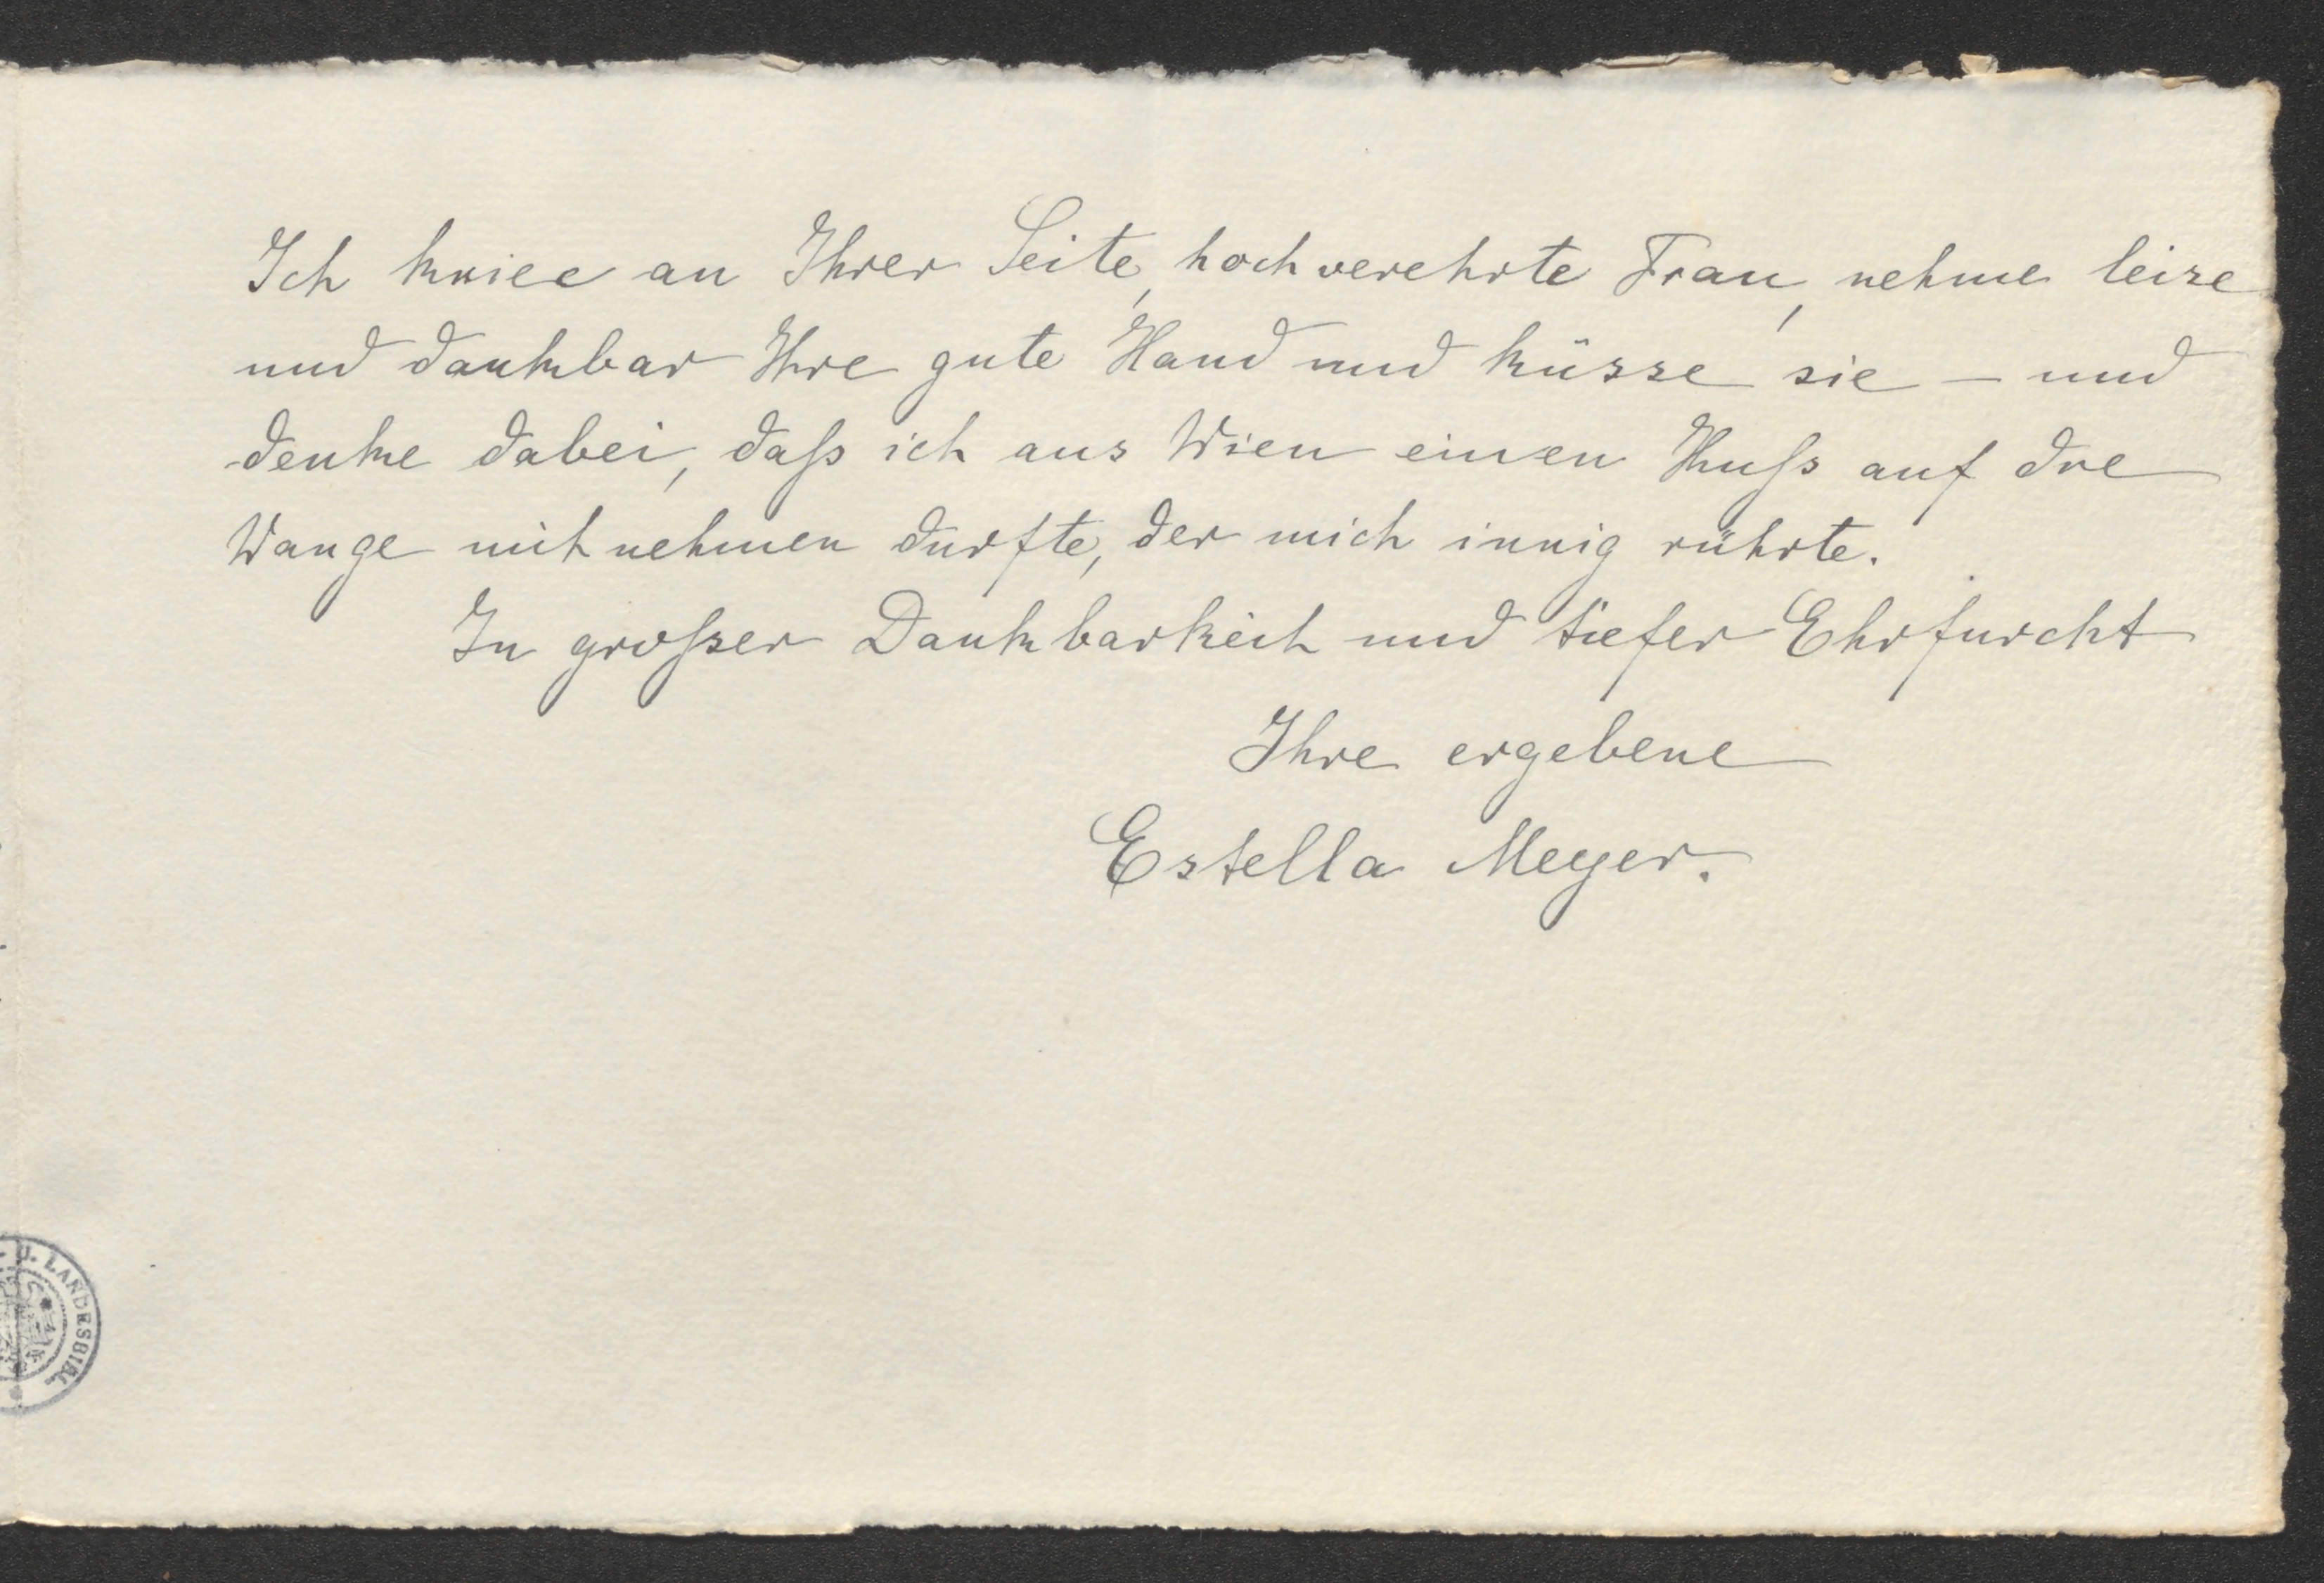 Ich kniee an Ihrer Seite, hochverehrte Frau, nehme leise
und dankbar Ihre gute Hand und küsse sie – und
denke dabei, daſs ich aus Wien einen Kuſs auf die
Wange mitnehmen durfte, der mich innig rührte.
In groſser Dankbarkeit und tiefer Ehrfurcht
Ihre ergebene
Estella Meyer.
U. LANDESBIBL.